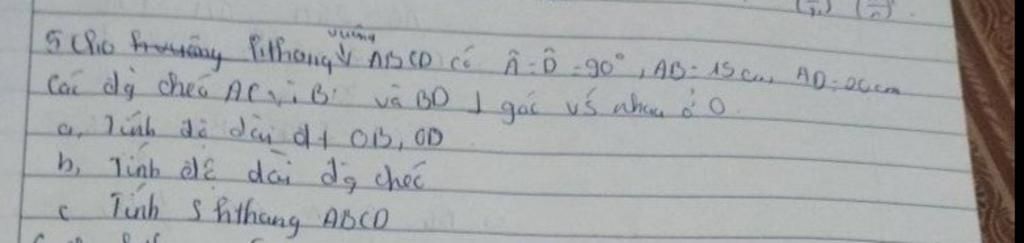 5 Cho hthang vuông ABCD có Â = D̂ = 90°, AB = 15 cm, AD = 20cm
Các dg chéo AC và BD ⊥ góc vs nhau ở O.
a, Tính độ dài dt OB, OD
b, Tính độ dài dg chéo
c Tính S hthang ABCD